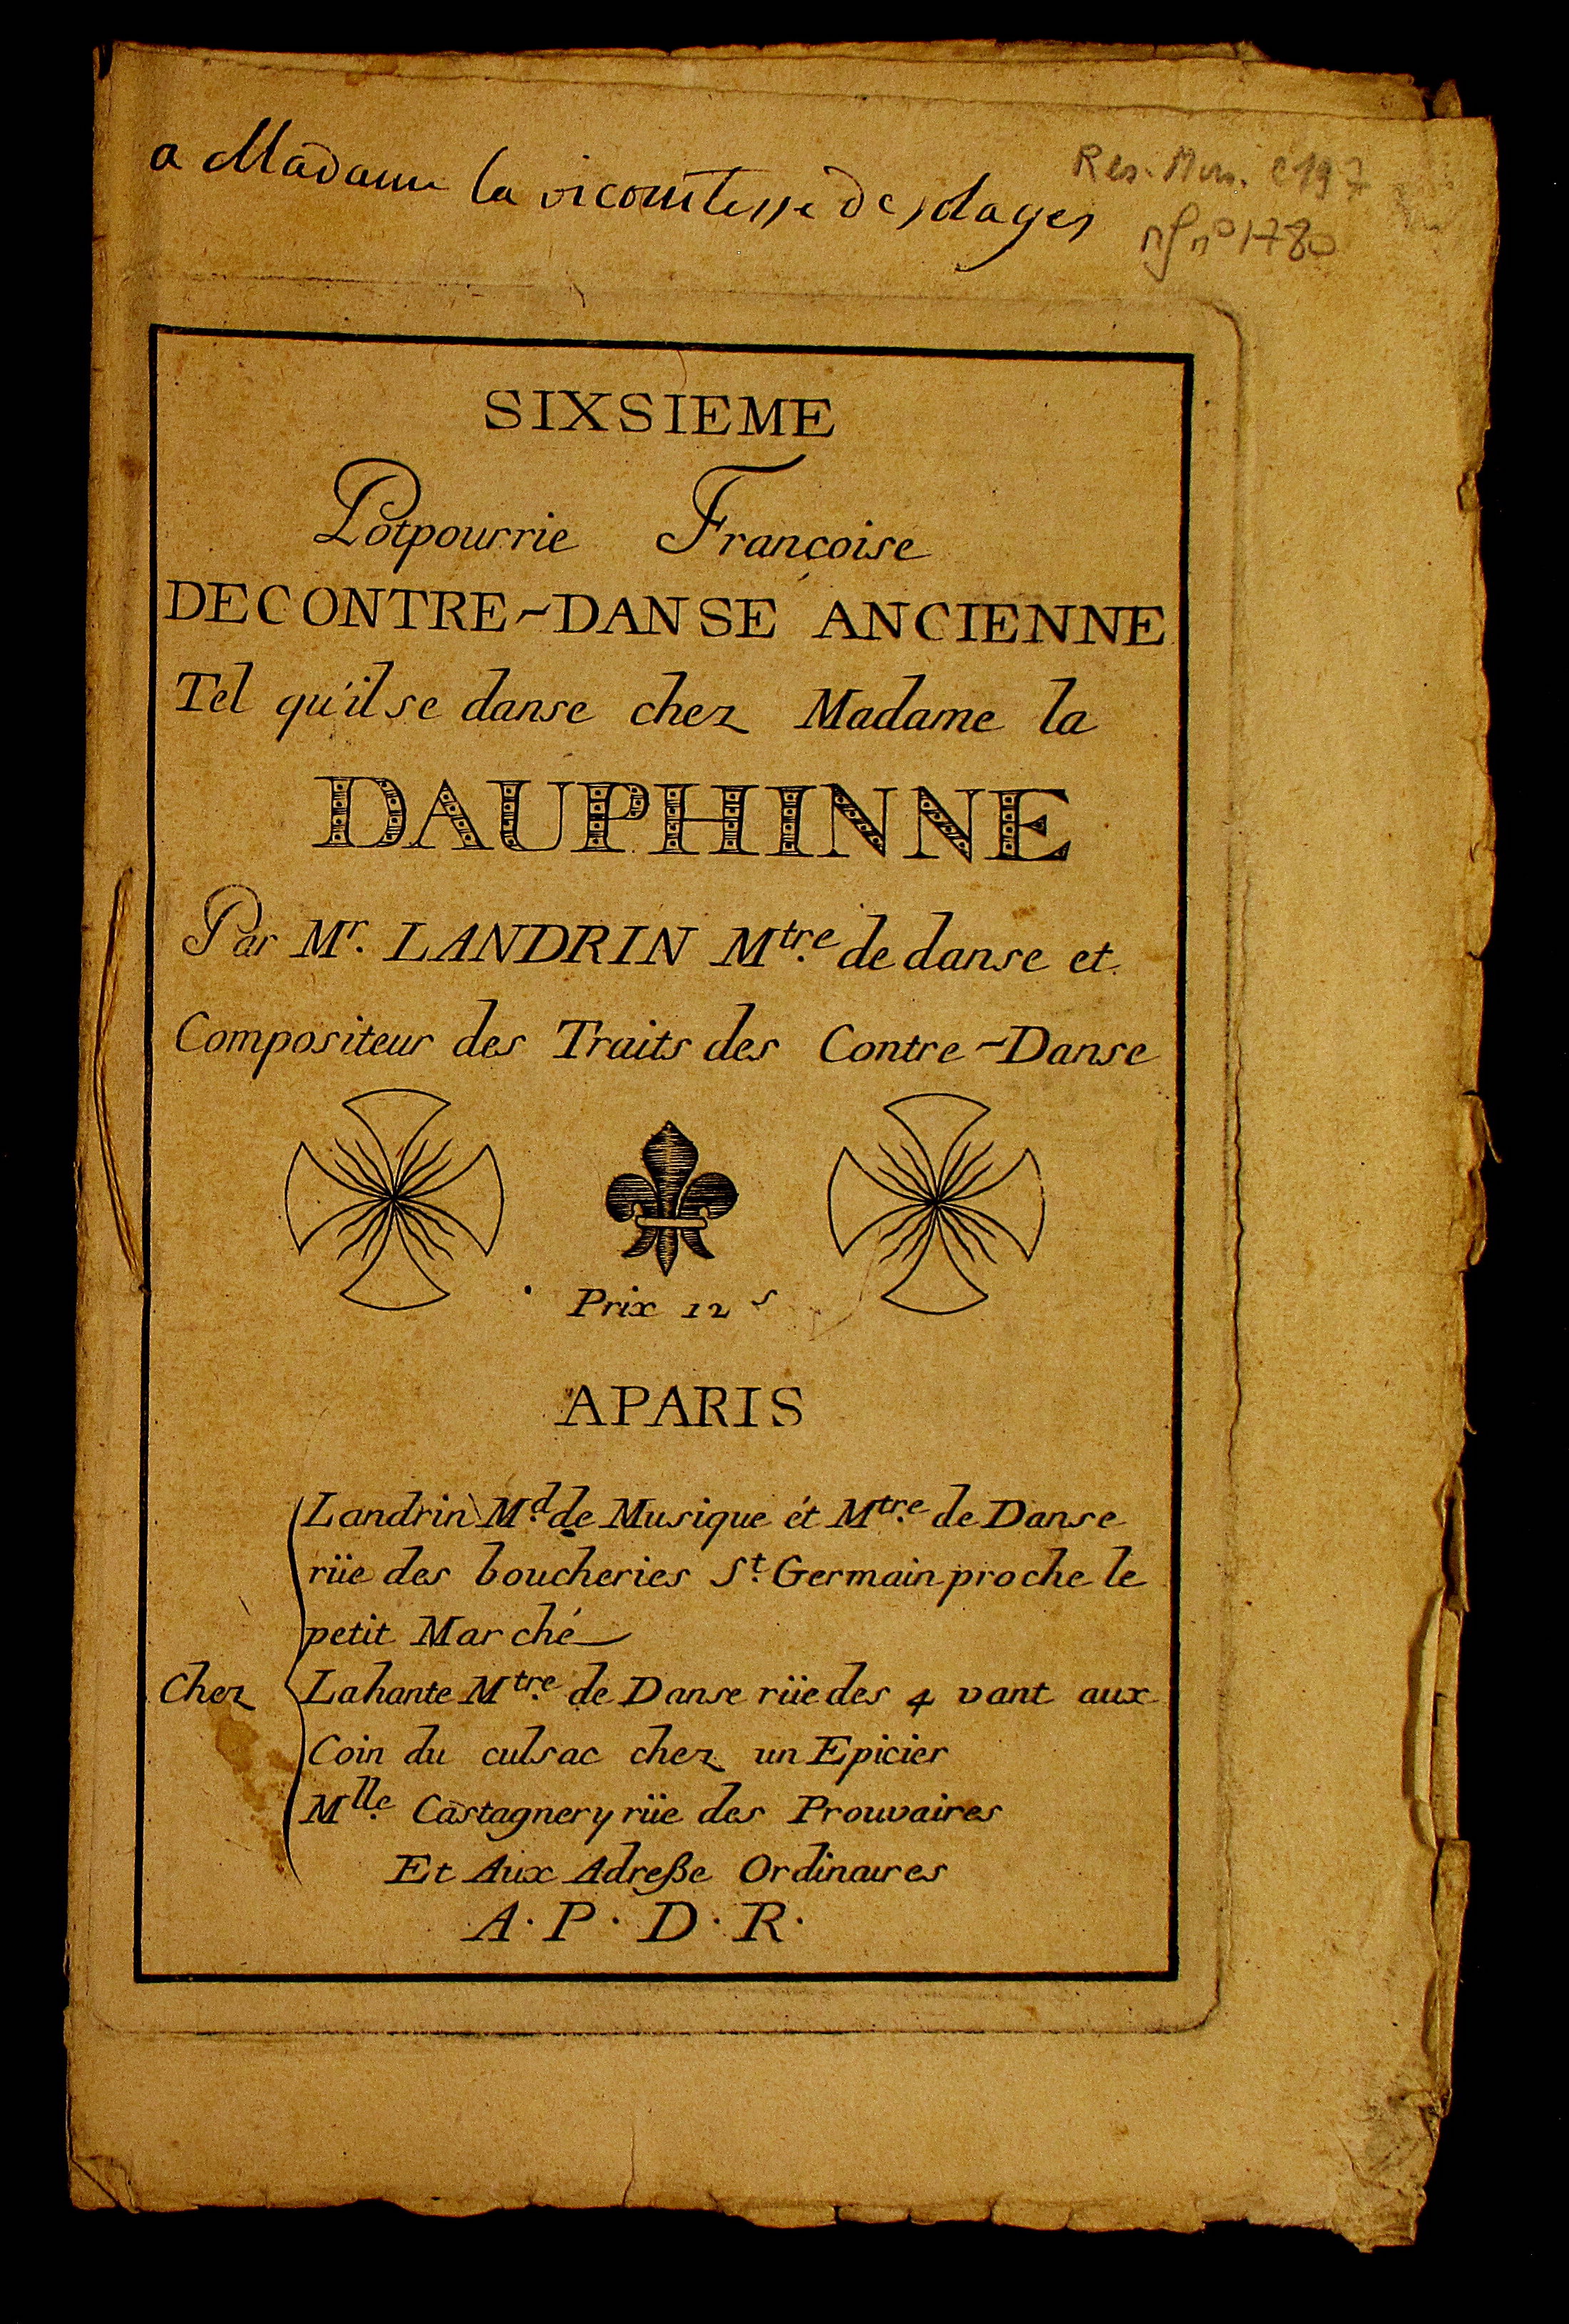 a Madame la vicomtesse desdages
Res. Mus. C197
nf n° 1780
SIXSIEME
Potpourrie Françoise
DECONTRE-DANSE ANCIENNE
Tel qu'il se danse chez Madame la
DAUPHINNE
Par Mr. LANDRIN Mtre. de danse et
Compositeur des Traits des Contre-Danse
Prix 12 s
APARIS
Landrin Md. de Musique ét Mtre. de Danse
rüe des boucheries St. Germain proche le
petit Marché
Chez
Lahante Mtre. de Danse rüe des 4 vant aux
Coin du culsac chez un Epicier
Mlle. Castagnery rüe des Prouvaires
Et Aux Adreße Ordinaires
A. P. D. R.